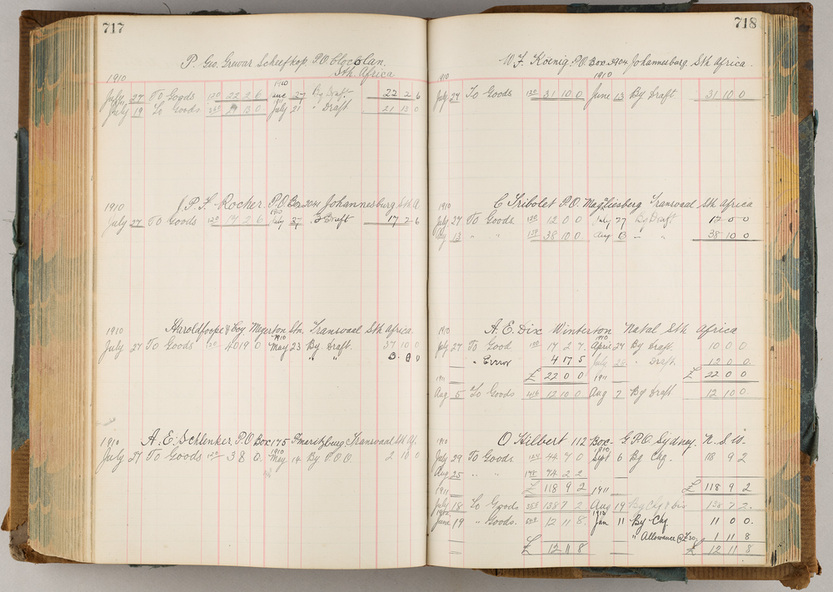 717
P. Geo. Scheefkop P.O. Clocolan.
Sth Africa
1910
1910
July 27 To Goods 22 2 6 June 27 By Draft 22 2 6
July 19 To Goods July 21 " Draft 21 10 0
1910
P. F. Rocher. P.O Box Johannesburg Sth A
July 27 To Goods 17 2 6 July 27 Draft 17 2 6
1910
Harold & Coy Meyerton Stn. Transvaal Sth Africa.
1910
July 27 To Goods 40 19 0 May 23 By Draft 37 10 0
" "
1910
A. E. Schlenker. P.O Box 175 Transvaal Sth Af.
1910
July 27 To Goods 3 8 0 May By P.O.O. 2 10 0
718
W. F. Koenig P.O Box Johannesburg Sth Africa.
1910
1910
July 27 To Goods 31 10 0 June 13 By Draft 31 10 0
1910
C Tribolet P.O. Magliesberg Transvaal Sth Africa
July 27 To Goods 12 0 0 July 27 By Draft 12 0 0
Aug 13 " " 38 10 0 Aug 13 " " 38 10 0
1910
A. E. Dix Winterton Natal Sth Africa
1910
July 27 To Good 17 2 7 April 27 By Draft 10 0 0
" Error 4 17 5 July " Draft 12 0 0
£ 22 0 0 £ 22 0 0
1911 1911
Aug 5 To Goods 12 10 0 Aug 7 By Draft 12 10 0
1910
O Hilbert 112 Box G.P.O. Sydney. N.S.W.
1910
July 29 To Goods 44 7 0 Sept 6 By Chq. 118 9 2
Aug 25 " " 74 2 2
£ 118 9 2 £ 118 9 2
1911 1911
July 18 To Goods 7 2 Aug 19 By Chq 7 2
1912 1912
June 19 " Goods. 12 11 8 Jan 11 By Chq 11 0 0
" Allowance 1 11 8
£ 12 11 8 £ 12 11 8